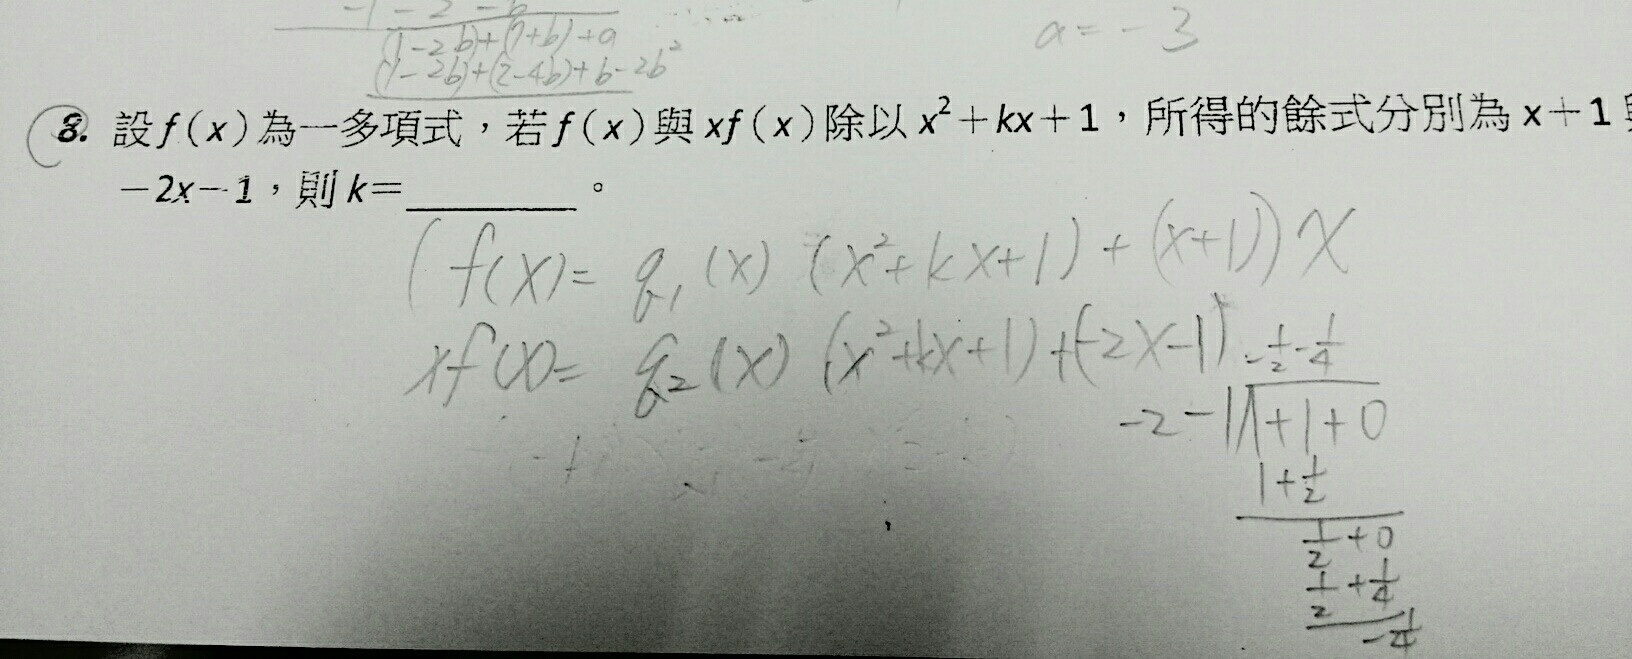 -1-2-b
(1-2b)+(7+b)+a
(1-2b)+(2-4b)+b-2b²
a=-3
8. 設f(x)為一多項式，若f(x)與xf(x)除以x²+kx+1，所得的餘式分別為x+1
-2x-1，則k=________。
(f(x)= q₁(x) (x²+kx+1)+(x+1))x
xf(x)= q₂(x) (x²+kx+1)+(-2x-1)
-1/2-1/4
-2-1 1+1+0
1+1/2
1/2+0
1/2+1/4
-1/4